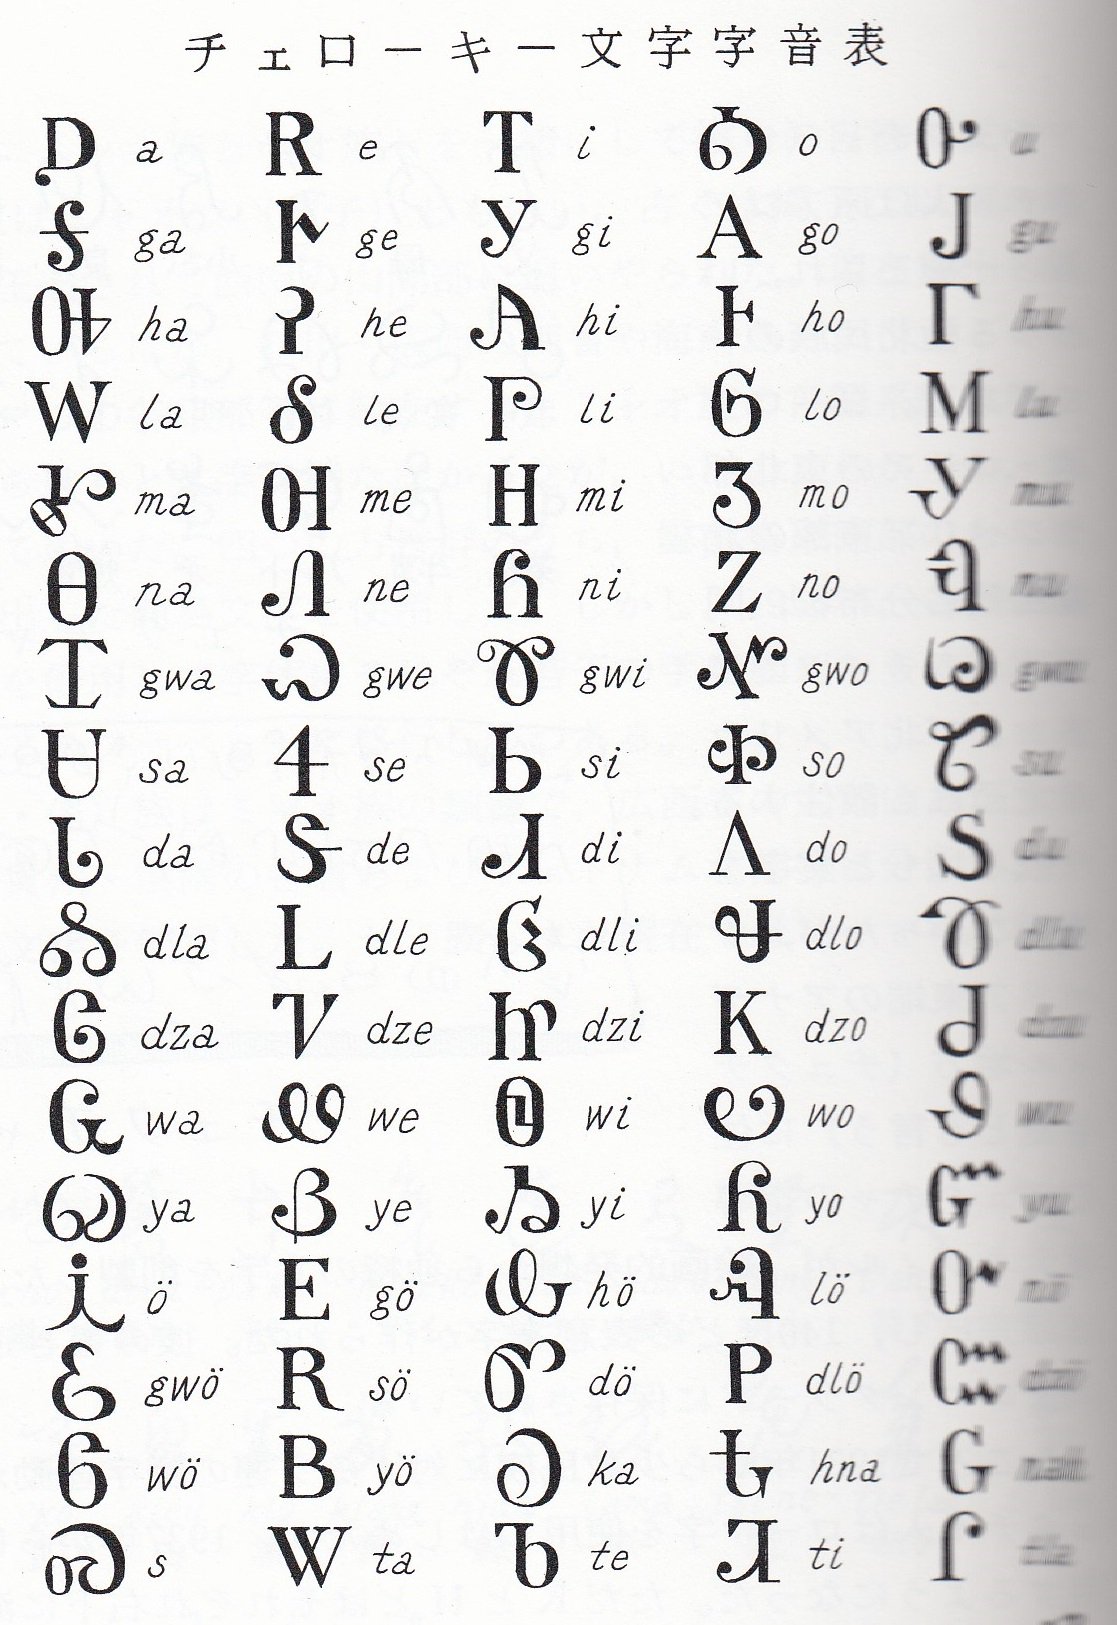 チェローキー文字字音表
Ꭰ a Ꭱ e Ꭲ i Ꭳ o Ꭴ u
Ꭶ ga Ꭸ ge Ꭹ gi Ꭺ go Ꭻ gu
Ꭽ ha Ꭾ he Ꭿ hi Ꮀ ho Ꮁ hu
Ꮃ la Ꮄ le Ꮅ li Ꮆ lo Ꮇ lu
Ꮉ ma Ꮊ me Ꮋ mi Ꮌ mo Ꮍ mu
Ꮎ na Ꮑ ne Ꮒ ni Ꮓ no Ꮔ nu
Ꮖ gwa Ꮗ gwe Ꮘ gwi Ꮙ gwo Ꮚ gwu
Ꮜ sa Ꮞ se Ꮟ si Ꮠ so Ꮡ su
Ꮣ da Ꮥ de Ꮧ di Ꮩ do Ꮪ du
Ꮬ dla Ꮮ dle Ꮯ dli Ꮰ dlo Ꮱ dlu
Ꮳ dza Ꮴ dze Ꮵ dzi Ꮶ dzo Ꮷ dzu
Ꮹ wa Ꮺ we Ꮻ wi Ꮼ wo Ꮽ wu
Ꮿ ya Ᏸ ye Ᏹ yi Ᏺ yo Ᏻ yu
Ꭵ ö Ꭼ gö Ꮂ hö Ꮈ lö Ꮕ nö
Ꮛ gwö Ꮢ sö Ꮫ dö Ꮲ dlö Ꮸ dzö
Ꮾ wö Ᏼ yö Ꭷ ka Ꮏ hna Ꮐ nah
Ꮝ s Ꮤ ta Ꮦ te Ꮨ ti Ꮭ tla